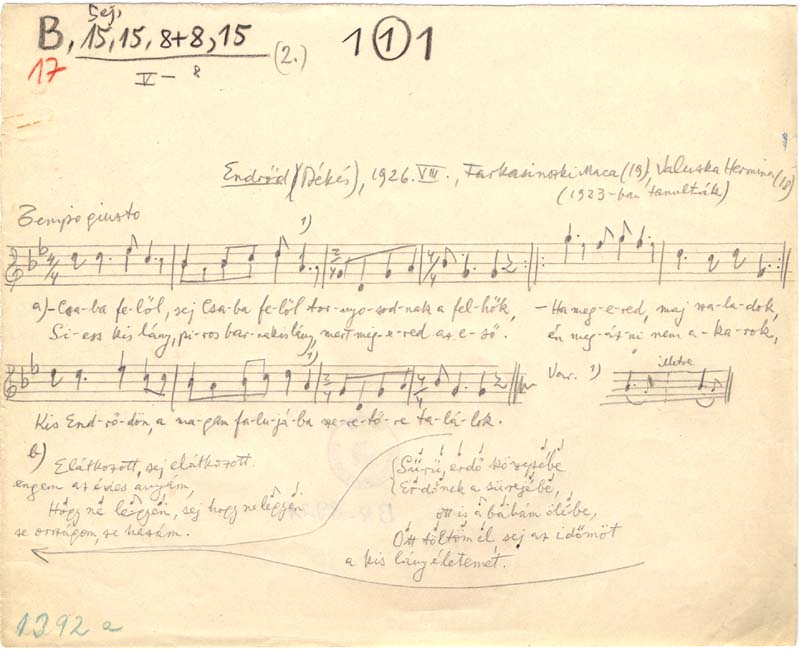 Sej,
B, 15, 15, 8+8, 15 (2.) 1 1 1
17 V – 8
Endrőd (Békés), 1926. VIII., Farkasinszki Maca (19), Valuska Hermina (18)
(1923-ban tanulták)
Tempo giusto
1)
a) - Csa-ba fe-lől, sej Csa-ba fe-lől tor-nyo-sod-nak a fel-hők, - Ha meg-e-red, maj sza-la-dok,
Si-ess kis lány, pi-ros bar-na kis lány, mert mig-e-red az e-ső. én meg-áz-ni nem a-ka-rok,
1) Var. 1) illetve
Kis End-rő-dön, a ma-gam fa-lu-já-ba sze-re-tő-re ta-lá-lok.
b) Elátkozott, sej elátkozott
engem az édes anyám,
Hogy ne légyën, sej hogy ne légyën
se országom, se hazám.
Sürü, erdő közepébe
Erdőnek a sürejébe,
ott is a babám ölébe,
Ott töltöm el sej az időmöt
a kis lány életemet.
1392 a